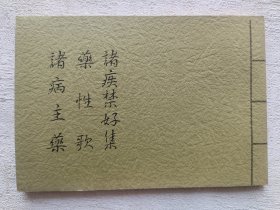 諸疾禁好集
藥性歌
諸病主藥